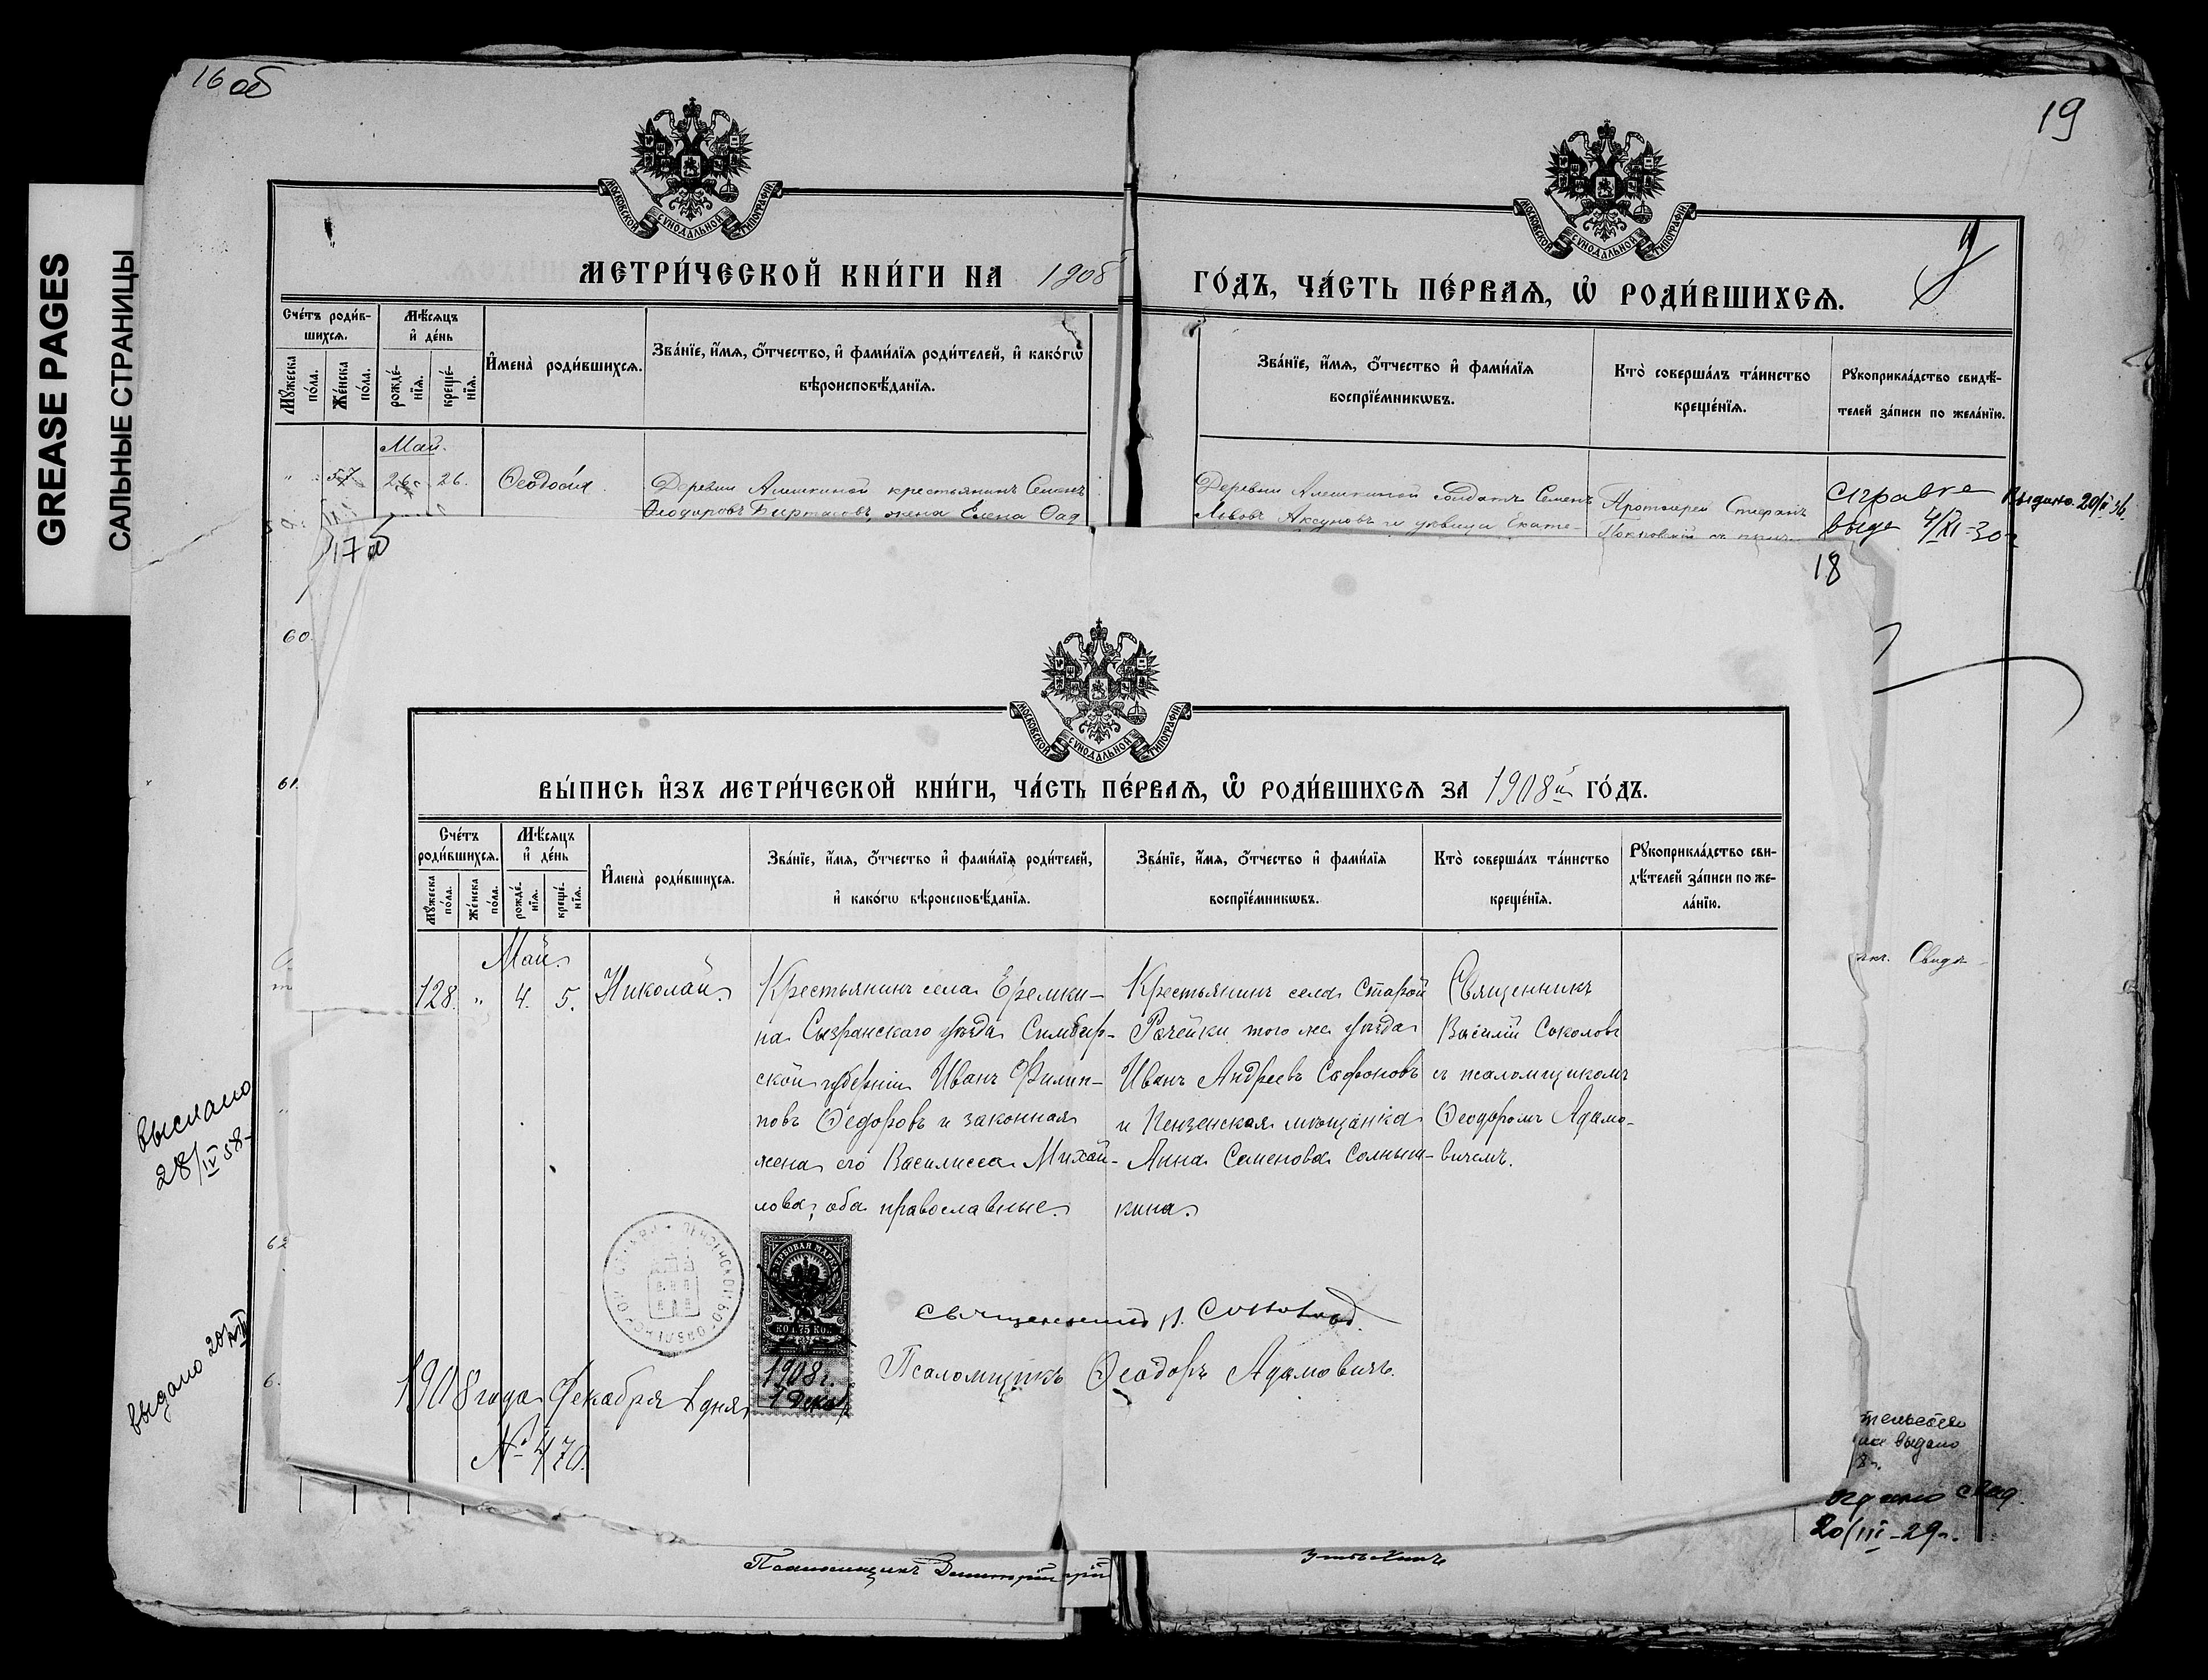 16 об
19
GREASE PAGES
САЛЬНЫЕ СТРАНИЦЫ
МОСКОВСКОЙ СУНОДАЛЬНОЙ ТИПОГРАФІИ
МОСКОВСКОЙ СУНОДАЛЬНОЙ ТИПОГРАФІИ
МЕТРИ́ЧЕСКОЙ КНИ́ГИ НА 1908 ГО́ДЪ, ЧА́СТЬ ПЕ́РВАѦ, Ѡ҆ РОДИ́ВШИХСѦ.
Сче́тъ роди́в-
шихсѧ.
Мꙋ́жеска по́ла.
Же́нска по́ла.
Мѣ́сѧцъ
и҆ де́нь
рожде́-
нїѧ.
креще́-
нїѧ.
И҆мена̀ роди́вшихсѧ.
Зва́нїе, и҆́мѧ, ѻ҆́тчество, и҆ фами́лїѧ роди́телей, и҆ како́гѡ
вѣроисповѣ́данїѧ.
Зва́нїе, и҆́мѧ, ѻ҆́тчество и҆ фами́лїѧ
воспрїе́мникѡвъ.
Кто̀ соверша́лъ та́инство
креще́нїѧ.
Рꙋкоприкла́дство свидѣ́-
телей за́писи по жела́нїю.
Май.
" 57 26 26. Ѳеодосія
Деревни Алешкиной крестьянинъ Семенъ
Ѳеодоровъ жена Елена
Деревни Алешкиной солдатъ Семенъ
Львовъ Аксеновъ и девица Екате-
Протоіерей Стефанъ
Покровскій съ
Справка
выда 4/XI-30 г
Выдано. 20/
17 об
18
60.
61.
МОСКОВСКОЙ СУНОДАЛЬНОЙ ТИПОГРАФІИ
ВЫ́ПИСЬ И҆ЗЪ МЕТРИ́ЧЕСКОЙ КНИ́ГИ, ЧА́СТЬ ПЕ́РВАѦ, Ѡ҆ РОДИ́ВШИХСѦ ЗА 1908й ГО́ДЪ.
Сче́тъ
роди́вшихсѧ.
Мꙋ́жеска по́ла.
Же́нска по́ла.
Мѣ́сѧцъ
и҆ де́нь
рожде́-
нїѧ.
креще́-
нїѧ.
И҆мена̀ роди́вшихсѧ.
Зва́нїе, и҆́мѧ, ѻ҆́тчество и҆ фами́лїѧ роди́телей,
и҆ како́гѡ вѣроисповѣ́данїѧ.
Зва́нїе, и҆́мѧ, ѻ҆́тчество и҆ фами́лїѧ
воспрїе́мникѡвъ.
Кто̀ соверша́лъ та́инство
креще́нїѧ.
Рꙋкоприкла́дство сви-
дѣ́телей за́писи по же-
ла́нїю.
Май.
128. " 4. 5. Николай.
Крестьянинъ села Еремки-
на Сызранскаго уѣзда Симбир-
ской губерніи Иванъ Филип-
повъ Ѳедоровъ и законная
жена его Василисса Михай-
лова; оба православные.
Крестьянинъ села Старой
Рачейки того же уѣзда
Иванъ Андреевъ Сафоновъ
и Пензенская мѣщанка
Анна Семенова Солныш-
кина.
Священникъ
Василій Соколовъ
съ псаломщикомъ
Ѳеодоромъ Адамо-
вичемъ.
ГЕРБОВАЯ МАРКА
75 КОП.
1908 г.
1 Декаб
Священникъ В. Соколовъ.
Псаломщикъ Ѳеодоръ Адамовичъ.
1908 года Декабря 1 дня
№ 470.
выслано
28/IV 58
62
выдано 20/
6.
Свидѣ-
выдано
20/III-29 г.
Псаломщикъ Димитрій